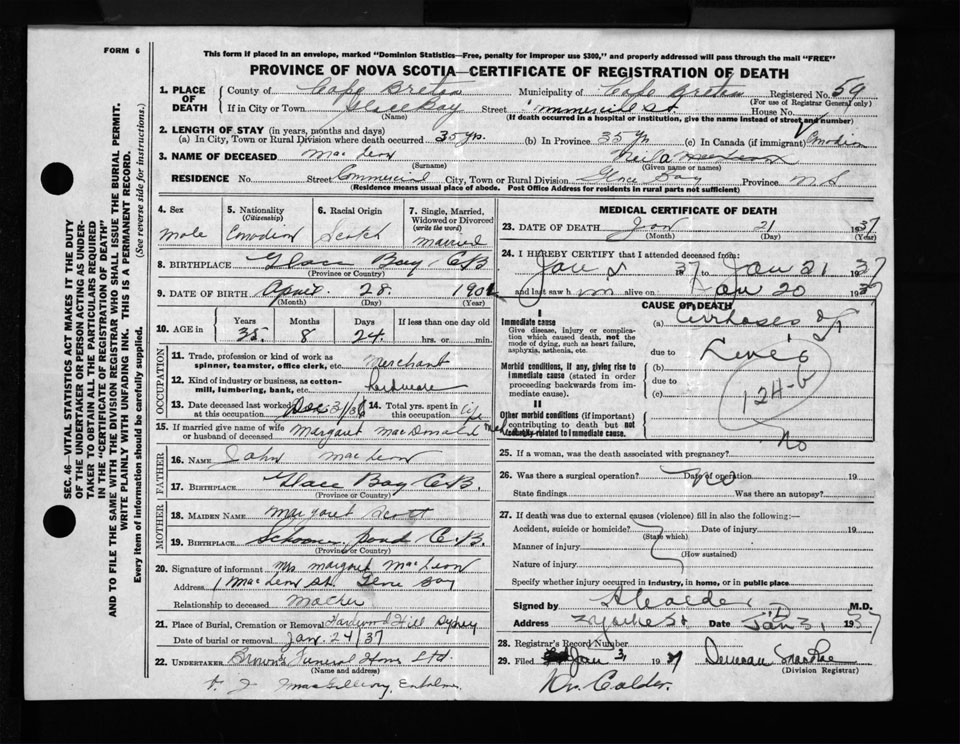 FORM 6
This form if placed in an envelope, marked "Dominion Statistics—Free, penalty for improper use $300," and properly addressed will pass through the mail "FREE"
PROVINCE OF NOVA SCOTIA—CERTIFICATE OF REGISTRATION OF DEATH
1. PLACE OF DEATH
County of Cape Breton Municipality of Cape Breton Registered No. 59
(For use of Registrar General only)
If in City or Town Glace Bay Street Commercial St. House No.
(Name) (If death occurred in a hospital or institution, give the name instead of street and number)
2. LENGTH OF STAY (in years, months and days)
(a) In City, Town or Rural Division where death occurred 35 yrs. (b) In Province 35 yr (c) In Canada (if immigrant) Canadian
3. NAME OF DECEASED Mac Leod Neil
(Surname) (Given name or names)
RESIDENCE No. Street Commercial City, Town or Rural Division Glace Bay Province N.S.
(Residence means usual place of abode. Post Office Address for residents in rural parts not sufficient)
4. Sex
Male
5. Nationality
(Citizenship)
Canadian
6. Racial Origin
Scotch
7. Single, Married, Widowed or Divorced
(write the word)
Married
8. BIRTHPLACE Glace Bay, C.B.
(Province or Country)
9. DATE OF BIRTH April 28 190
(Month) (Day) (Year)
10. AGE in Years Months Days If less than one day old
35 8 24 hrs. or min.
OCCUPATION
11. Trade, profession or kind of work as spinner, teamster, office clerk, etc. Merchant
12. Kind of industry or business, as cotton-mill, lumbering, bank, etc. Hardware
13. Date deceased last worked at this occupation Dec 31/36
14. Total yrs. spent in this occupation Life
15. If married give name of wife or husband of deceased Margaret MacDonald
FATHER
16. NAME John Mac Leod
17. BIRTHPLACE Glace Bay C.B.
(Province or Country)
MOTHER
18. MAIDEN NAME Margaret Scott
19. BIRTHPLACE Schooner Pond C.B.
(Province or Country)
20. Signature of informant Mrs Margaret Mac Leod
Address 1 Mac Leod St. Glace Bay
Relationship to deceased Mother
21. Place of Burial, Cremation or Removal Hardwood Hill Sydney
Date of burial or removal Jan. 24/37
22. UNDERTAKER Brown's Funeral Home Ltd.
(Name and address)
MacGillivray, Embalmer
MEDICAL CERTIFICATE OF DEATH
23. DATE OF DEATH Jan 21 1937
(Month) (Day) (Year)
24. I HEREBY CERTIFY that I attended deceased from:
Jan 37 to Jan 21 1937
and last saw him alive on Jan 20 1937
CAUSE OF DEATH
I
Immediate cause
Give disease, injury or complication which caused death, not the mode of dying, such as heart failure, asphyxia, asthenia, etc.
(a) Cirrhosis of
due to Liver
Morbid conditions, if any, giving rise to immediate cause (stated in order proceeding backwards from immediate cause).
(b)
due to
(c)
124-b
II
Other morbid conditions (if important) contributing to death but not causally related to immediate cause.
25. If a woman, was the death associated with pregnancy? No
26. Was there a surgical operation? No Date of operation 19
State findings Was there an autopsy?
27. If death was due to external causes (violence) fill in also the following:—
Accident, suicide or homicide? Date of injury 19
(State which)
Manner of injury
(How sustained)
Nature of injury
Specify whether injury occurred in industry, in home, or in public place
Signed by A Calder M.D.
Address Date Jan 31 1937
28. Registrar's Record Number
29. Filed Jan 31 1937 Duncan MacRae
(Division Registrar)
Dr. Calder.
SEC. 46—VITAL STATISTICS ACT MAKES IT THE DUTY
OF THE UNDERTAKER OR PERSON ACTING AS UNDER-
TAKER TO OBTAIN ALL THE PARTICULARS REQUIRED
IN THE "CERTIFICATE OF REGISTRATION OF DEATH"
AND TO FILE THE SAME WITH THE DIVISION REGISTRAR WHO SHALL ISSUE THE BURIAL PERMIT.
WRITE PLAINLY WITH UNFADING INK. THIS IS A PERMANENT RECORD.
Every item of information should be carefully supplied. (See reverse side for instructions.)